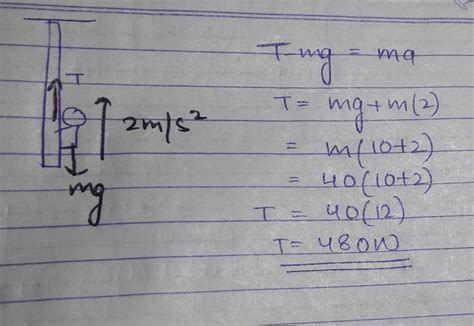 T
2m/s²
mg
T-mg = ma
T = mg+m(2)
= m(10+2)
= 40(10+2)
T = 40(12)
T = 480N